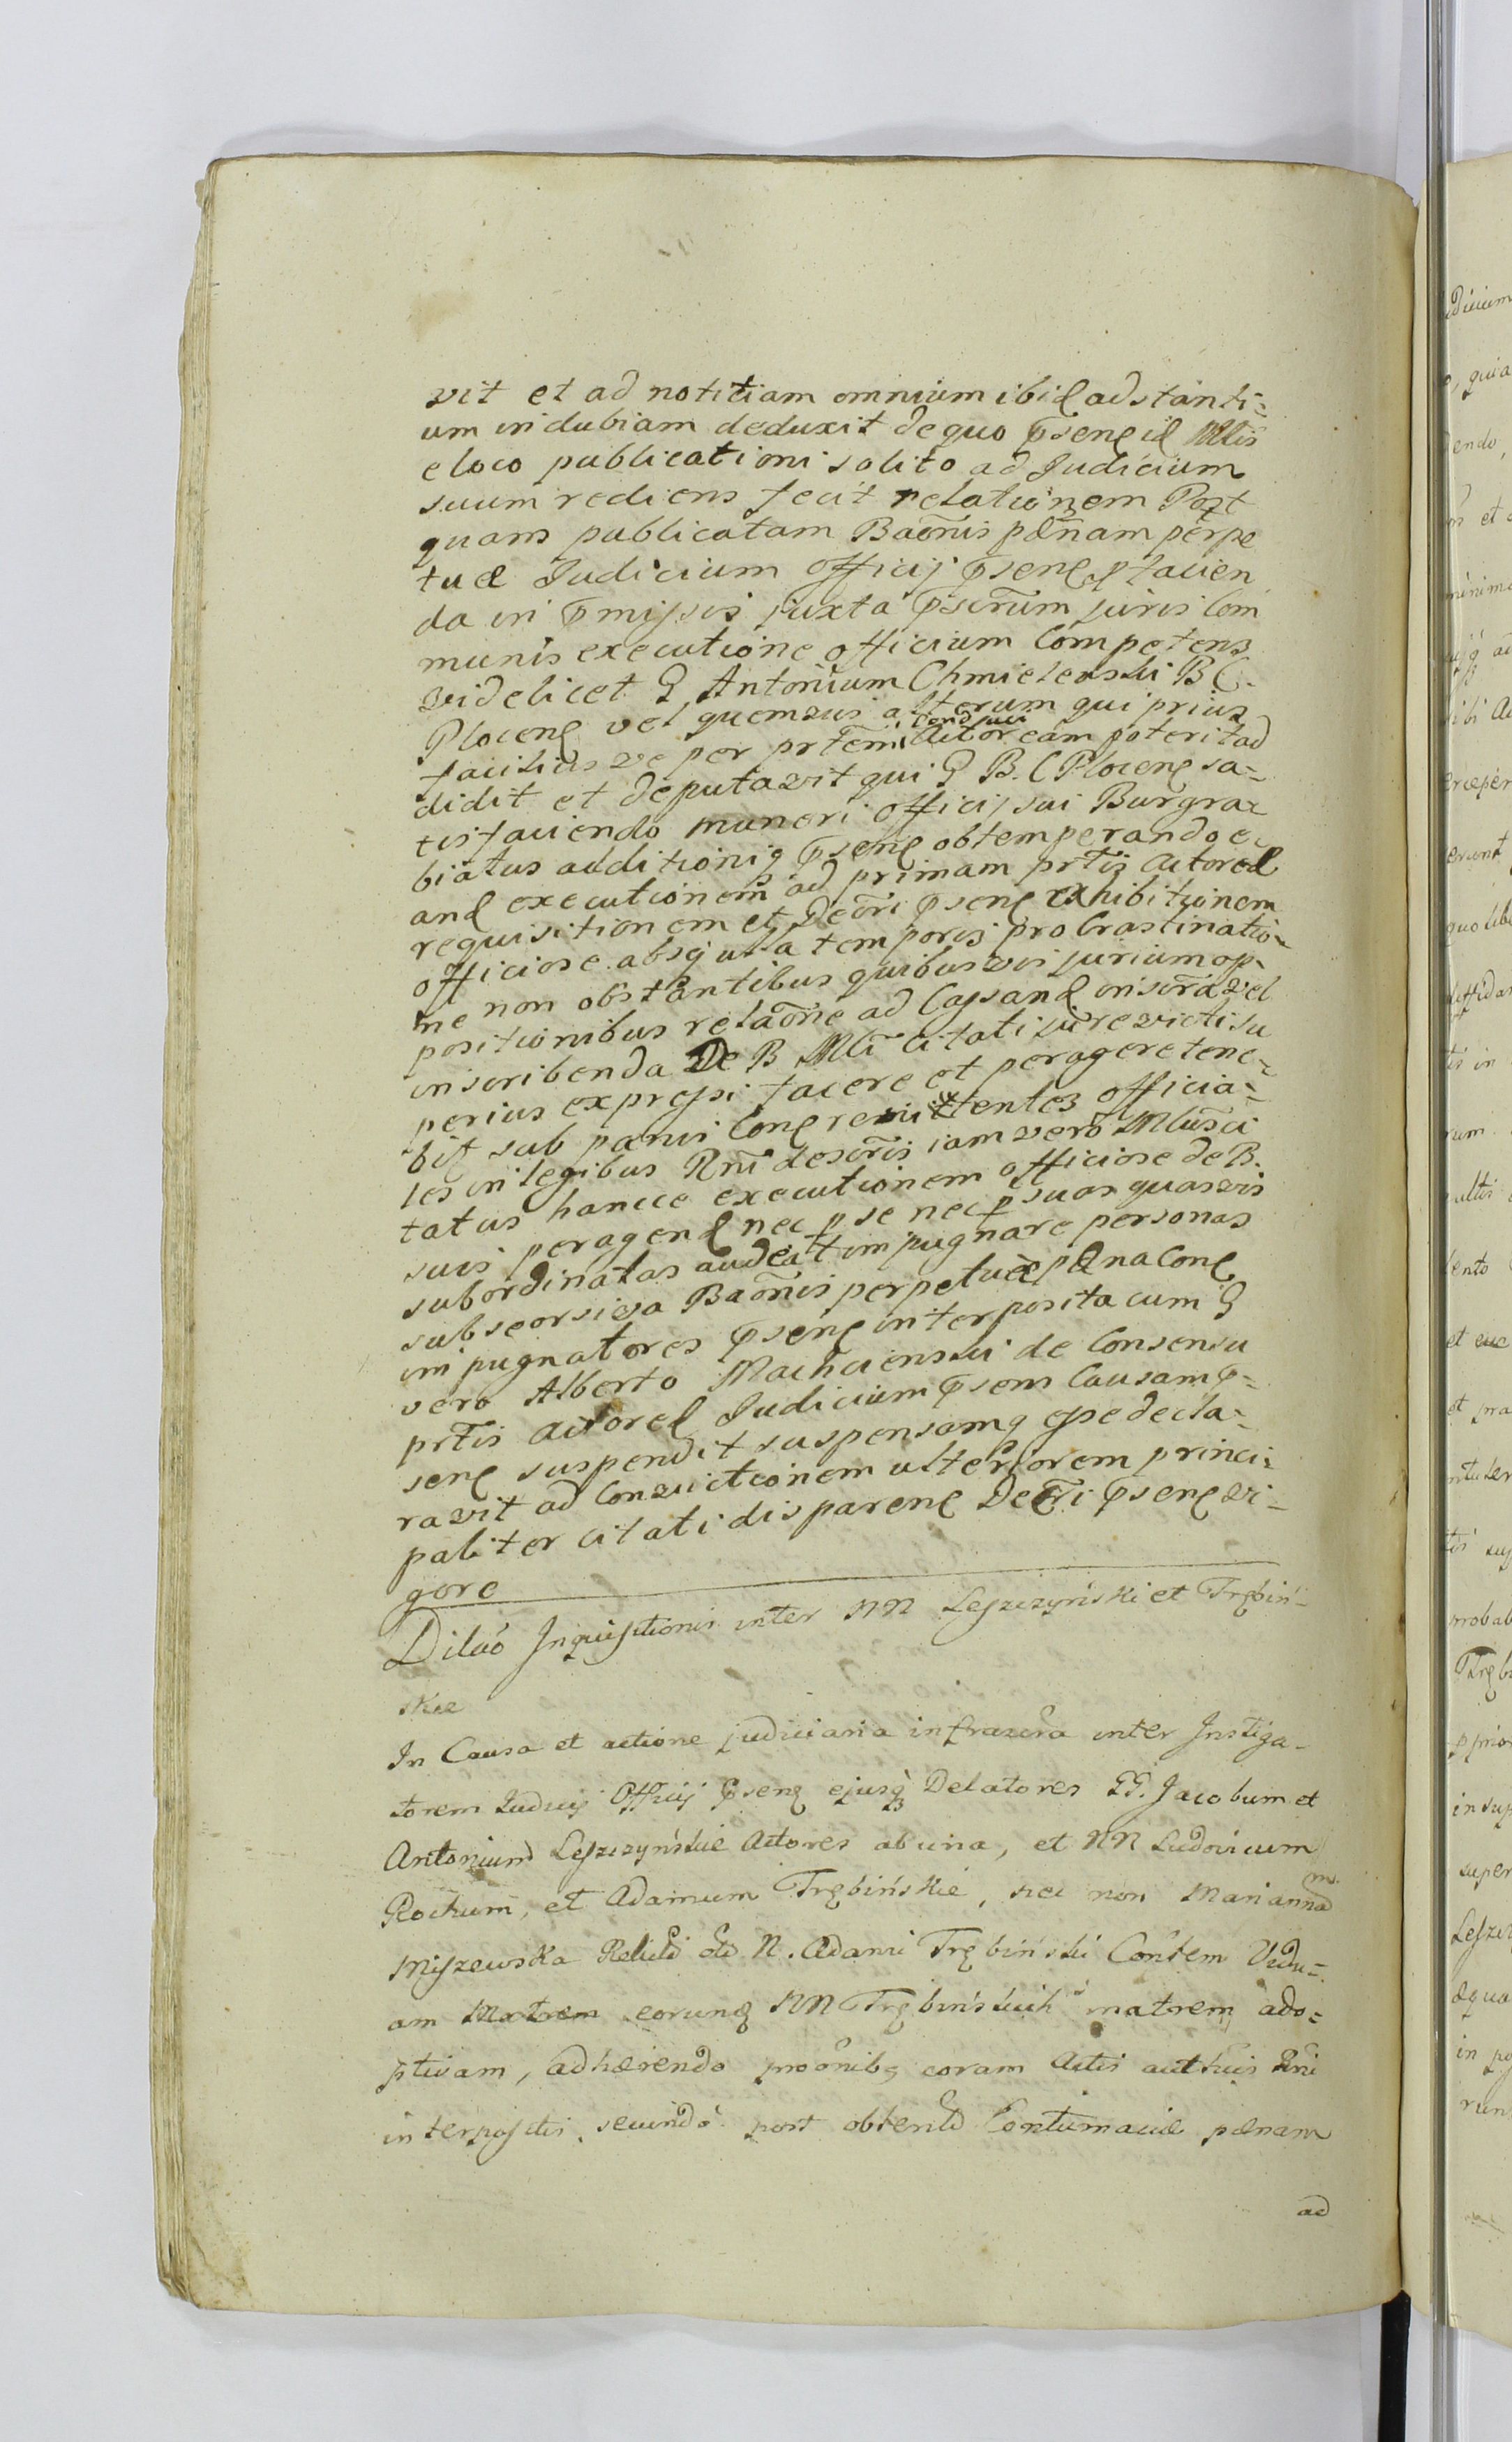 vit et ad notitiam omnium ibid adstanti=
um indubiam deduxit de quo p̄senꝭ id Mlis̄
e loco publicationi solito ad Judicium
suum rediens fecit relationem Post
quam publicatam Bao̅nis pœ̅nam perpe
tuæ Judicium officij p̄senꝭ p̱ facien
da in p̄missis juxta p̄scr̅um juris Com̄
munis executione officium Competens
videlicet G Antonium Chmielewski B C.
Plocenꝭ vel quemvis alterum qui prius
faciliusve per prt̅em Actoream conduci poterit ad
didit et deputavit qui G B. C Plocenꝭ sa=
tisfaciendo muneri officij sui Burgra=
biatus additioniq̨ p̄senꝭ obtemperando e
and executionem ad primam prt̅is Actoreæ
requisitionem et Decr̅i p̄senꝭ exhibitionem
officiose absq̨ ulla temporis procrastinatio=
ne non obstantibus quibusvis jurium op=
positionibus relao̅ne ad Cassand inscr̅a vel
inscribenda De B Mlī citati jure victi su
perius expressi facere et peragere tene=
bit sub pœnis Conꝭ renittentes officia=
les in legibus Rnī descr̅is iam vero Mlus̄ ci
tatus hancce executionem officiose de B.
suis peragend nec p̱ se nec p̱ suas quasvis
subordinatas audeat impugnare personas
sub seorsiva Bao̅nis perpetuæ pœna Conꝭ
impugnatores p̄senꝭ interposita cum G
vero Alberto Machcienski de Consensu
prt̅is Actoreæ Judicium p̄sens Causam p̄=
senꝭ suspendit suspensamq̨ esse decla=
ravit ad Convictionem ulteriorem princi=
paliter citati disparenꝭ Decr̅i p̄senꝭ vi=
gore
Dilao̅ Inquisitionis inter NN Leszczyński et Trębiń=
skie
In Causa et actione judiciaria infrascr̅a inter Instiga=
torem Judicij Officij p̄senꝭ ejusq̨ Delatores GG. Jacobum et
Antonium Leszczyńskie Actores ab una, et NN Ludovicum
Rochum, et Adamum Trębińskie, nec non Mariannam
Miszewska Relictā olī N. Adami Trębiński Cont̅em Vidu=
am Matrem eorunđ NN Trębińskich matrem ado=
ptivam, adhærendo proo̅nibꝫ coram Actis authcis Rni
interpositis, secundo post obtentā Contumaciæ pœnam
ad